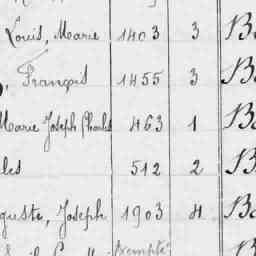 Louis, Marie 1403 3 B
François 1455 3 B
Marie Joseph Charles 463 1 B
les 512 2 B
guste, Joseph 1903 4 B
Exempté B